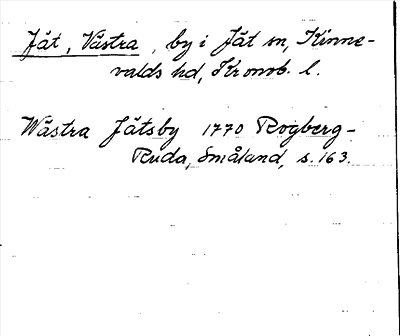 Jät, Västra, by i Jät sn, Kinne-
valds hd, Kronob. l.
Wästra Jätsby 1770 Rogberg-
Ruda, Småland, s. 163.